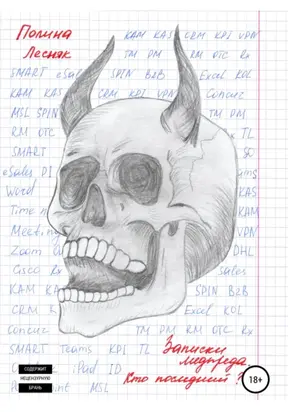 Полина
Лесняк
KAM KAS CRM KPI VPN
TM DM RM OTC Rx
SMART eSales SPIN B2B Excel KOL
KAM KAS CRM KPI VPN Concur
MSL SPIN TM DM
RM OTC TL
SMART
eSales
Word KAS
KAM
Meeting VPN
Zoom DHL
Cisco Rx Sales
KAM SPIN B2B
CRM Excel KOL
Concur TM DM RM OTC Rx
SMART Teams KPI TL
iPad ID
MSL
Записки
медпреда
Кто последний?
СОДЕРЖИТ
НЕЦЕНЗУРНУЮ
БРАНЬ
18+